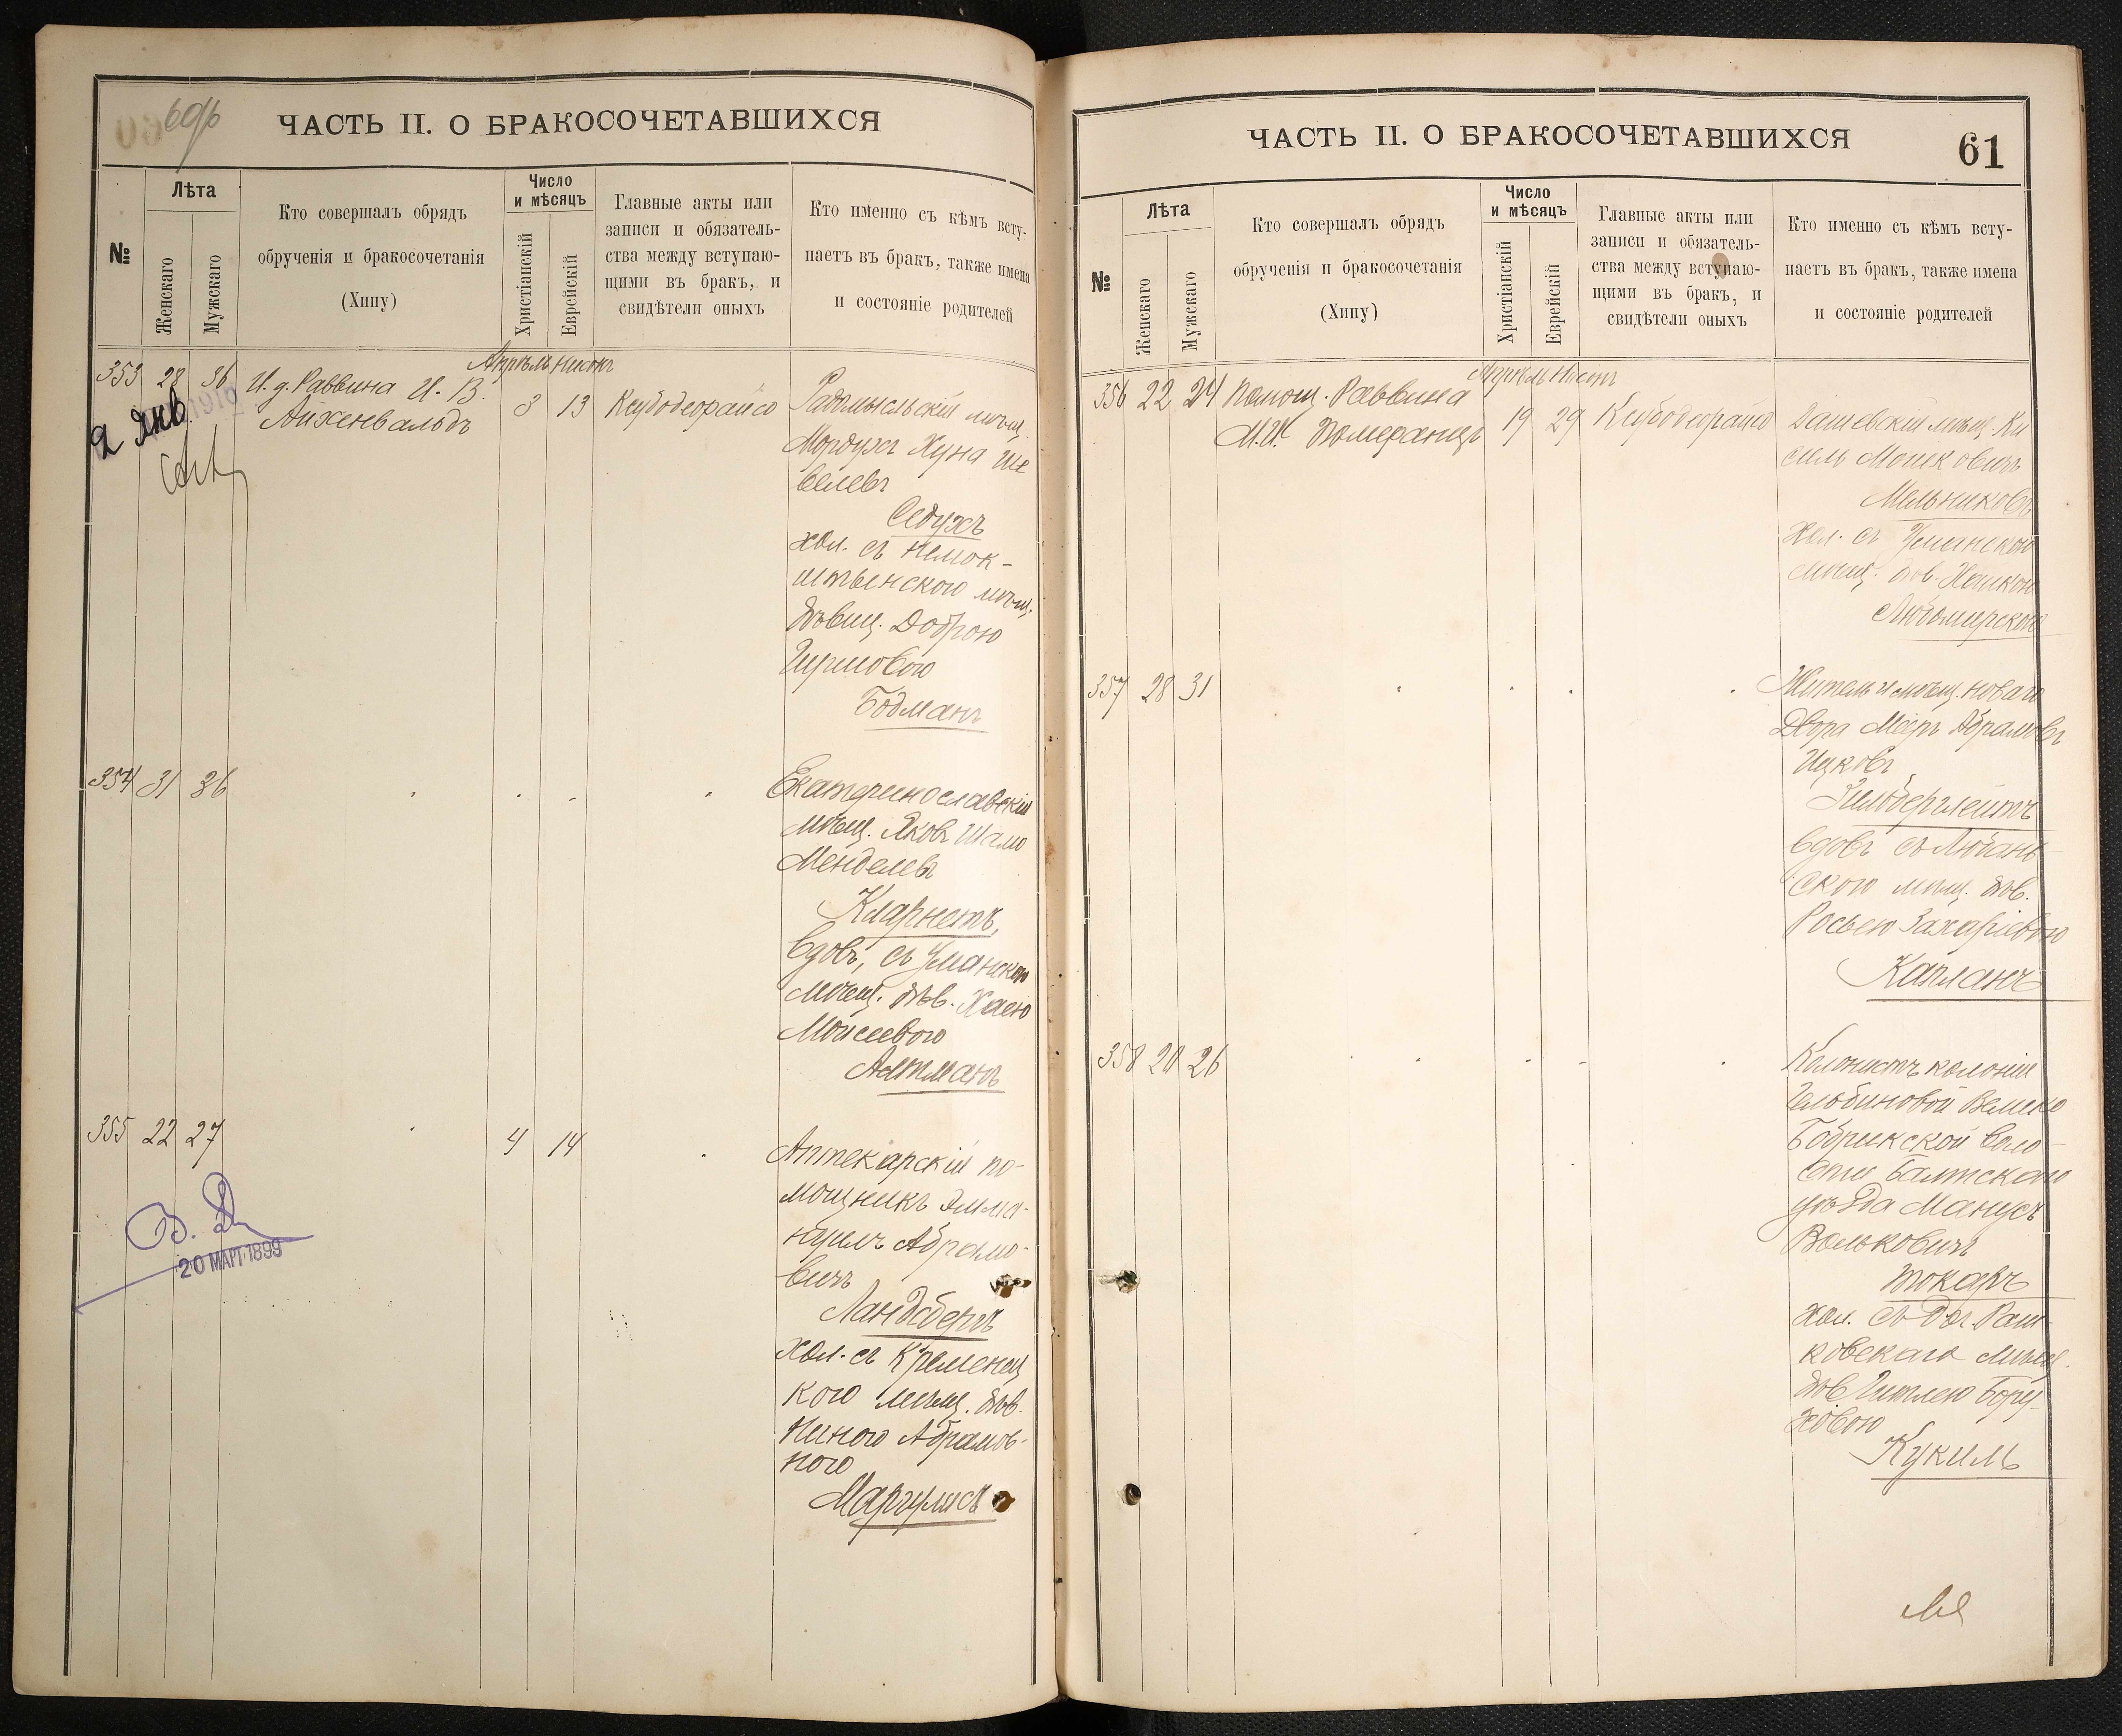 60об
ЧАСТЬ II. О БРАКОСОЧЕТАВШИХСЯ
№
Лѣта
Женскаго
Мужскаго
Кто совершалъ обрядъ
обрученія и бракосочетанія
(Хипу)
Число
и мѣсяцъ
Христіанскій
Еврейскій
Главные акты или
записи и обязатель-
ства между вступаю-
щими въ бракъ, и
свидѣтели оныхъ
Кто именно съ кѣмъ всту-
паетъ въ бракъ, также имена
и состояніе родителей
353 28 36
И. д. Раввина И. В.
Айхенвальдъ
Апрѣль Нисонъ
3 13
Ксубодеорайсо
Радомысльскій мѣщ.
Мордухъ Хуна Ше
велевъ
Седухъ
хол. съ
мѣщ.
дѣвиц. Доброю
Бодманъ
2 янв.
354 31 36
Екатеринославскій
мѣщ. Яковъ Шлемо
Менделевъ
Кларнетъ,
вдовъ, съ Уманскою
мѣщ. дѣв. Хаею
Моисеевою
Альтманъ
355 22 27
4 14
Аптекарскій по-
мощникъ Эмма-
нуилъ Абрамо-
вичъ
Ландсбергъ
хол. съ Кременец
кою мѣщ. дѣв.
Ниною Абрамов-
ною
Маргулисъ
20 МАРТ 1899
ЧАСТЬ II. О БРАКОСОЧЕТАВШИХСЯ
61
№
Лѣта
Женскаго
Мужскаго
Кто совершалъ обрядъ
обрученія и бракосочетанія
(Хипу)
Число
и мѣсяцъ
Христіанскій
Еврейскій
Главные акты или
записи и обязатель-
ства между вступаю-
щими въ бракъ, и
свидѣтели оныхъ
Кто именно съ кѣмъ всту-
паетъ въ бракъ, также имена
и состояніе родителей
356 22 24
Помощ. Раввина
М. И. Померанцъ
Апрѣль Нисонъ
19 29
Ксубодеорайсо
Дашевскій мѣщ. Ки
силь Мошковичъ
Мельниковъ
хол. съ
мѣщ. дѣв.
Любомирскою
357 28 31
Житель и мѣщ. Новаго
Двора Мееръ Абрамовъ
Ицковъ
вдовъ съ
скою мѣщ. дѣв.
Росьею Захаріевою
Капланъ
358 20 26
Колонистъ колоніи
Бобрикской воло-
сти Балтскаго
уѣзда Манусъ
Вольковичъ
Токарь
хол. съ доч. Раш-
ковскаго мѣщ.
дѣв. Гитлею Бору-
ховою
Кукиль